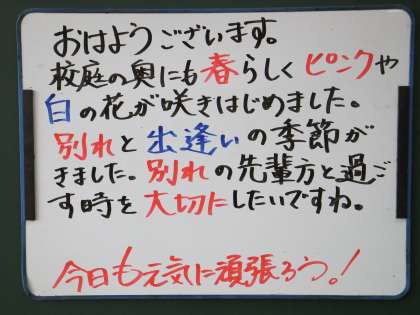 おはようございます。
校庭の奥にも春らしくピンクや
白の花が咲きはじめました。
別れと出逢いの季節が
きました。別れの先輩方と過ご
す時を大切にしたいですね。
今日も元気に頑張ろう。!